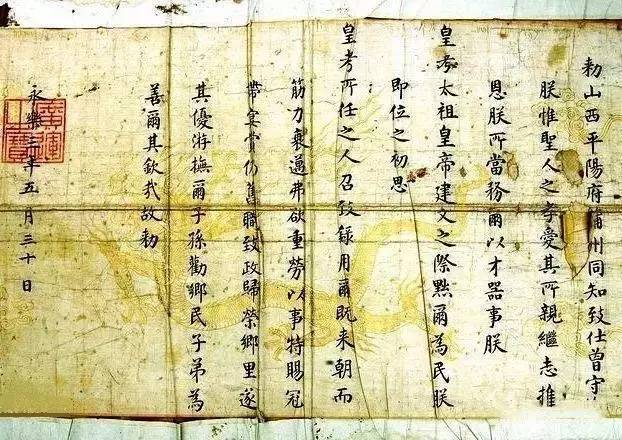 勑山西平陽府蒲州同知致仕曾守
朕惟聖人之孝愛其所親繼志推
恩朕所當務爾以才器事朕
皇考太祖皇帝建文之際黙爾為民朕
即位之初思
皇考所任之人召致錄用爾既来朝而
筋力衰邁弗欲重勞以事特賜冠
帶宴賚仍舊職致政歸榮鄉里遂
其優游撫爾子孫勸鄉民子弟為
善爾其欽哉故勑
永樂三年五月三十日
廣運之寶